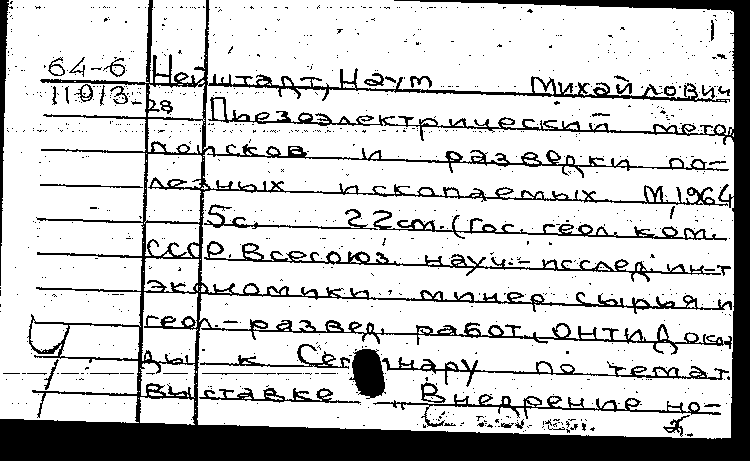 64-6
11013-28
Нейштадт, Наум Михайлович
Пьезоэлектрический метод
поисков и разведки по-
лезных ископаемых. М. 1964
5с. 22см. (Гос. геол. ком.
СССР. Всесоюз. науч.-исслед. ин-т
экономики минер. сырья и
геол.-развед. работ. ОНТИ Докла-
ды к Семинару по темат.
выставке „Внедрение но-